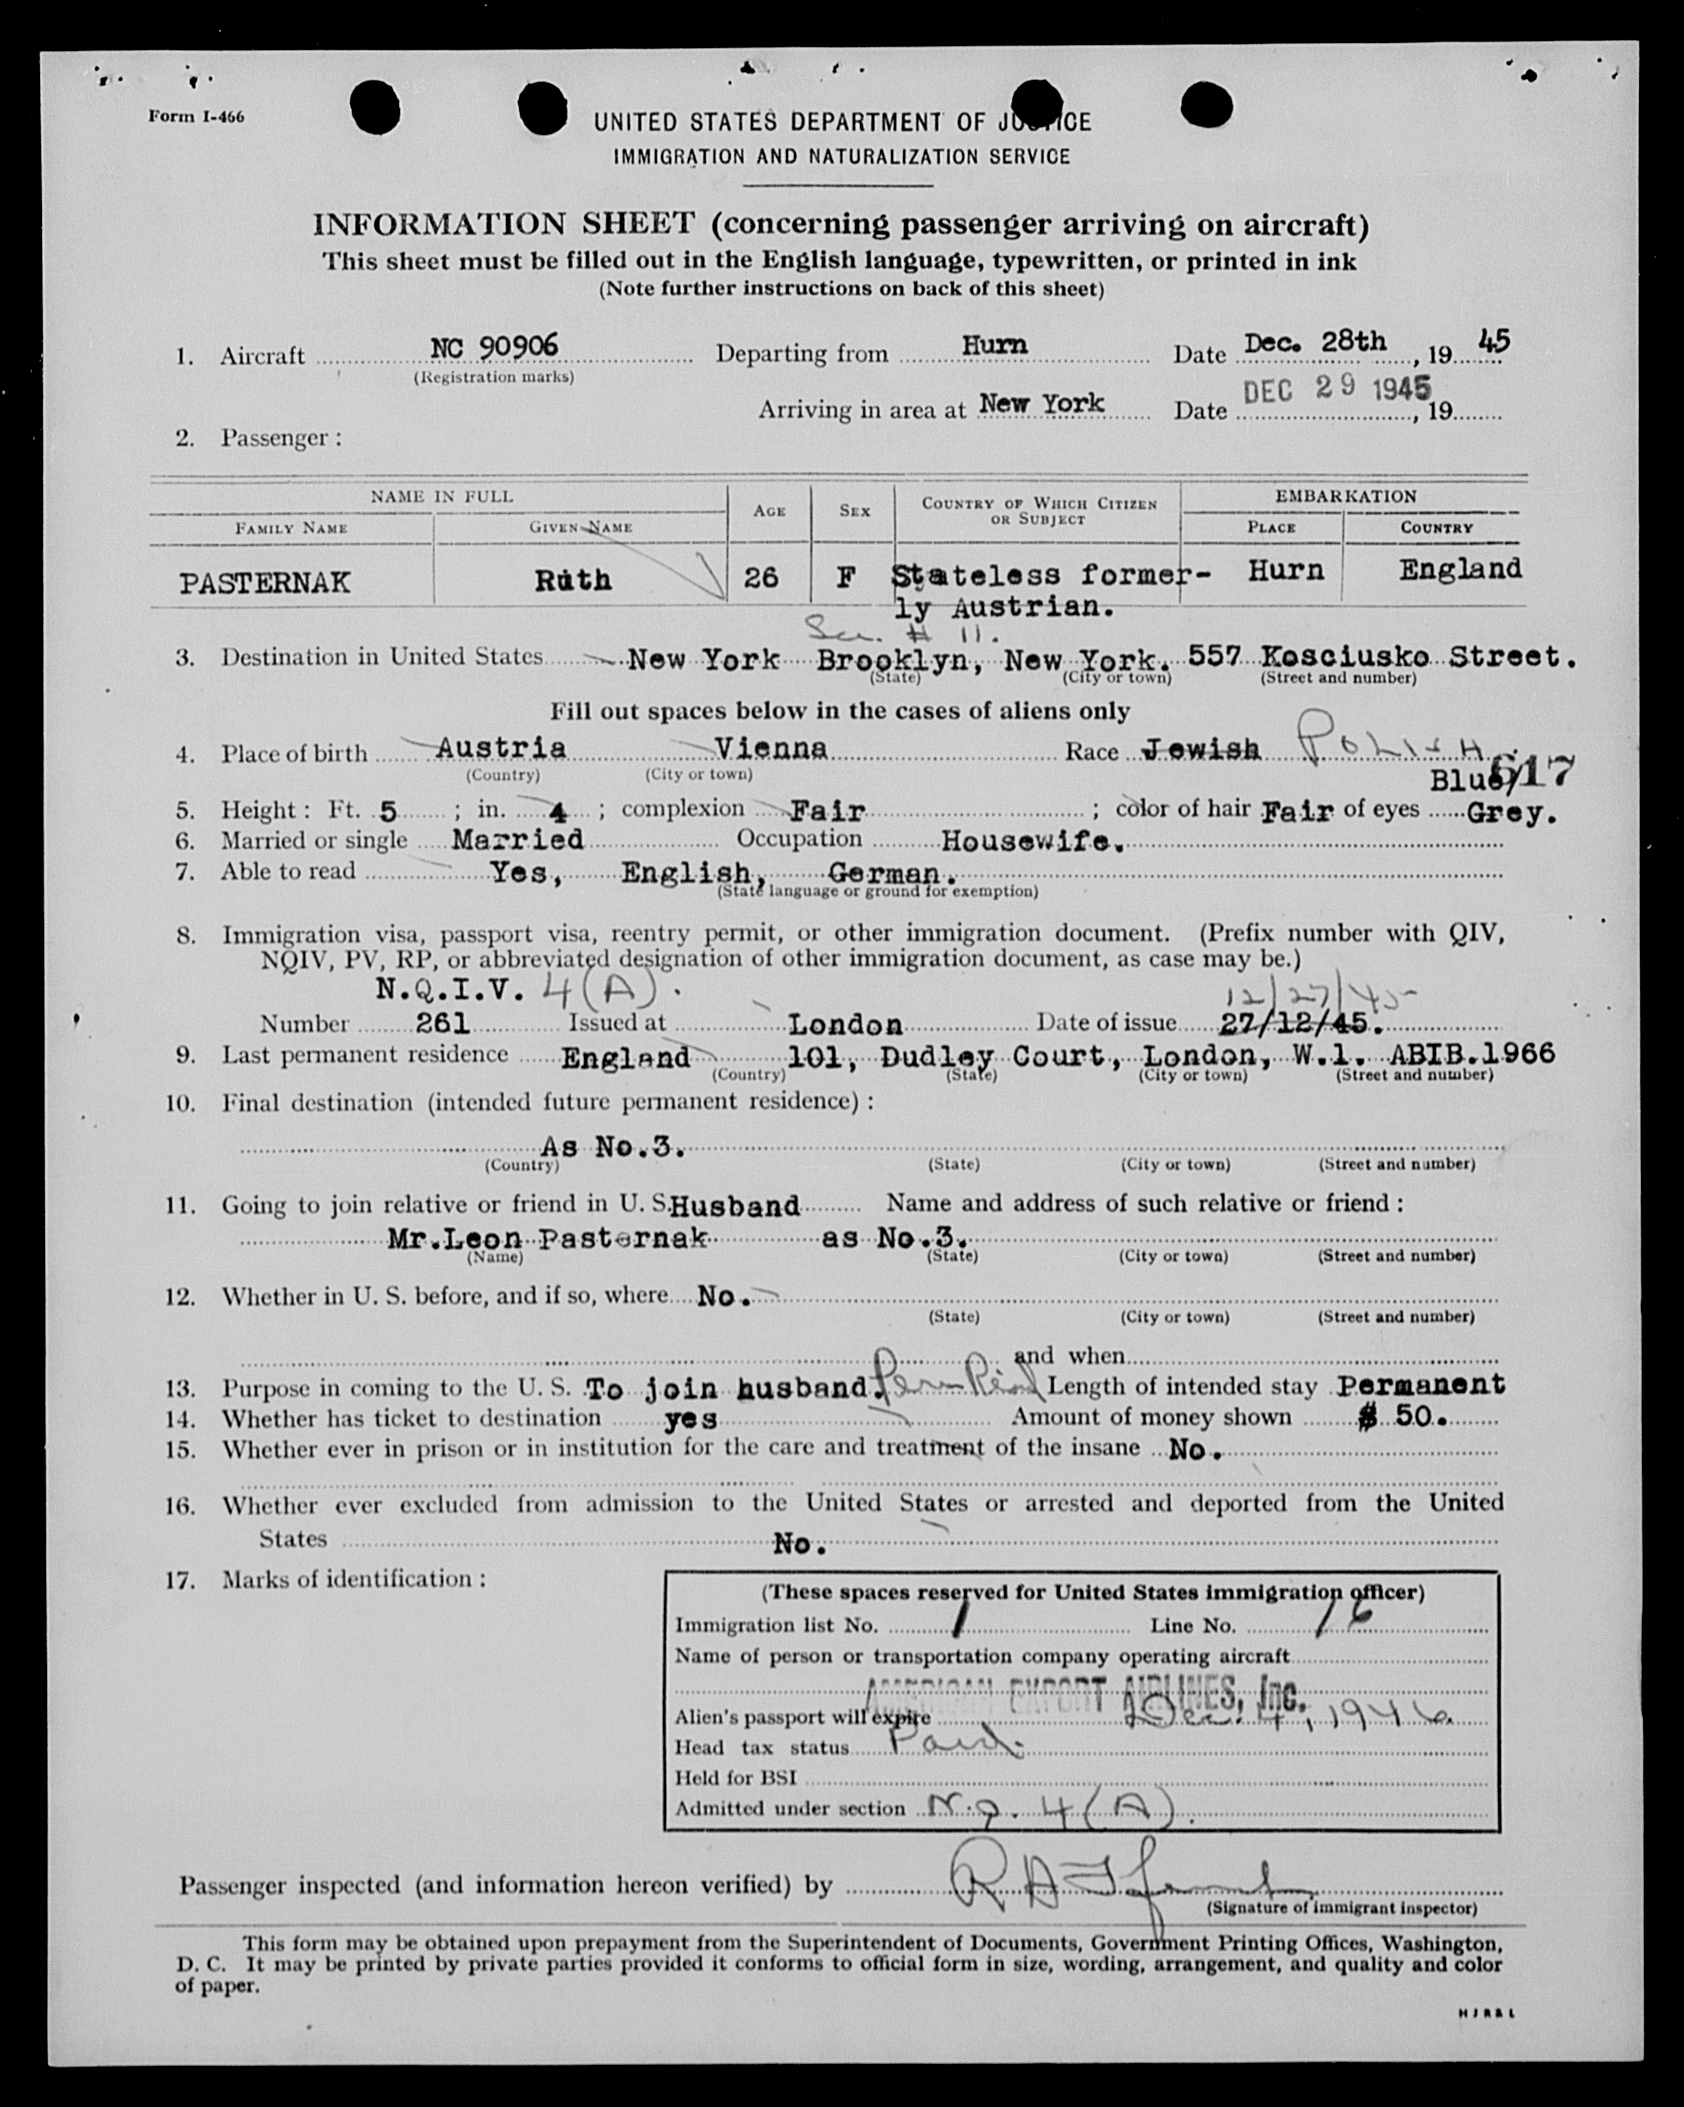 Form I-466
UNITED STATES DEPARTMENT OF JUSTICE
IMMIGRATION AND NATURALIZATION SERVICE
INFORMATION SHEET (concerning passenger arriving on aircraft)
This sheet must be filled out in the English language, typewritten, or printed in ink
(Note further instructions on back of this sheet)
1. Aircraft NC 90906 Departing from Hurn Date Dec. 28th, 19 45
(Registration marks)
DEC 29 1945
Arriving in area at New York Date , 19
2. Passenger:
NAME IN FULL AGE SEX COUNTRY OF WHICH CITIZEN OR SUBJECT EMBARKATION
FAMILY NAME GIVEN NAME PLACE COUNTRY
PASTERNAK Ruth 26 F Stateless former- Hurn England
ly Austrian.
# 11.
3. Destination in United States New York Brooklyn, New York. 557 Kosciusko Street.
(State) (City or town) (Street and number)
Fill out spaces below in the cases of aliens only
4. Place of birth Austria Vienna Race Jewish POLISH
(Country) (City or town) Blue/ 617
5. Height: Ft. 5; in. 4; complexion Fair; color of hair Fair of eyes Grey.
6. Married or single Married Occupation Housewife.
7. Able to read Yes, English, German.
(State language or ground for exemption)
8. Immigration visa, passport visa, reentry permit, or other immigration document. (Prefix number with QIV,
NQIV, PV, RP, or abbreviated designation of other immigration document, as case may be.)
N.Q.I.V. 4(A). 12/27/45
Number 261 Issued at London Date of issue 27/12/45.
9. Last permanent residence England 101, Dudley Court, London, W.1. ABIB.1966
(Country) (State) (City or town) (Street and number)
10. Final destination (intended future permanent residence):
As No.3.
(Country) (State) (City or town) (Street and number)
11. Going to join relative or friend in U. S. Husband Name and address of such relative or friend:
Mr.Leon Pasternak as No.3.
(Name) (State) (City or town) (Street and number)
12. Whether in U. S. before, and if so, where No.
(State) (City or town) (Street and number)
and when
13. Purpose in coming to the U. S. To join husband. Perm Res Length of intended stay Permanent
14. Whether has ticket to destination yes Amount of money shown $ 50.
15. Whether ever in prison or in institution for the care and treatment of the insane No.
16. Whether ever excluded from admission to the United States or arrested and deported from the United
States No.
17. Marks of identification:
(These spaces reserved for United States immigration officer)
Immigration list No. 1 Line No. 16
Name of person or transportation company operating aircraft
AMERICAN EXPORT AIRLINES, Inc.
Alien's passport will expire Dec. 4, 1946
Head tax status Paid.
Held for BSI
Admitted under section N.Q. 4(A).
Passenger inspected (and information hereon verified) by
(Signature of immigrant inspector)
This form may be obtained upon prepayment from the Superintendent of Documents, Government Printing Offices, Washington,
D. C. It may be printed by private parties provided it conforms to official form in size, wording, arrangement, and quality and color
of paper.
HJR&L